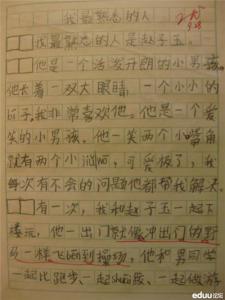 我最熟悉的人
我最熟悉的人是赵子玉。
他是一个活泼开朗的小男孩。
他长着一双大眼睛,一个小小的
我非常喜欢他。他是一个爱
笑的小男孩。他一笑两个小嘴角
就有两个小酒窝,可爱极了,我
每次有不会的问题他都帮我解决。
有一次,我和赵子玉一起下
楼玩,他一出门就像冲出们的野
马一样飞啊到操场,他和男同学
一起比跑步、一起 、一起做游
eduu论坛